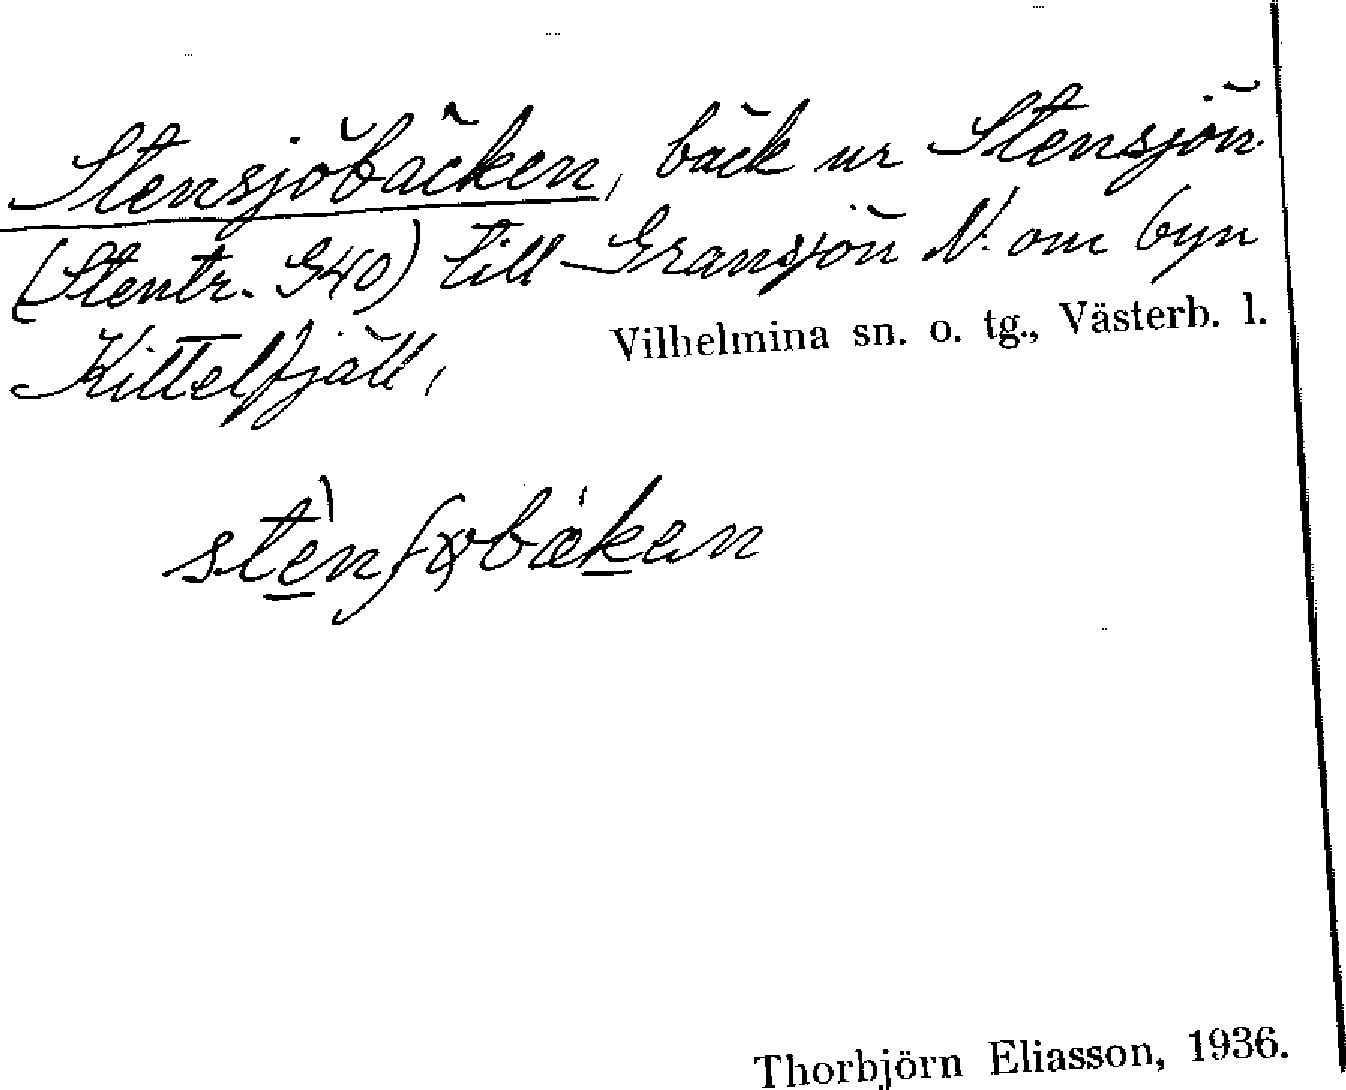 Stensjöbäcken, bäck ur Stensjön
(Stentr. G40) till Gransjön N. om byn
Kittelfjäll,
Vilhelmina sn. o. tg., Västerb. l.
Thorbjörn Eliasson, 1936.